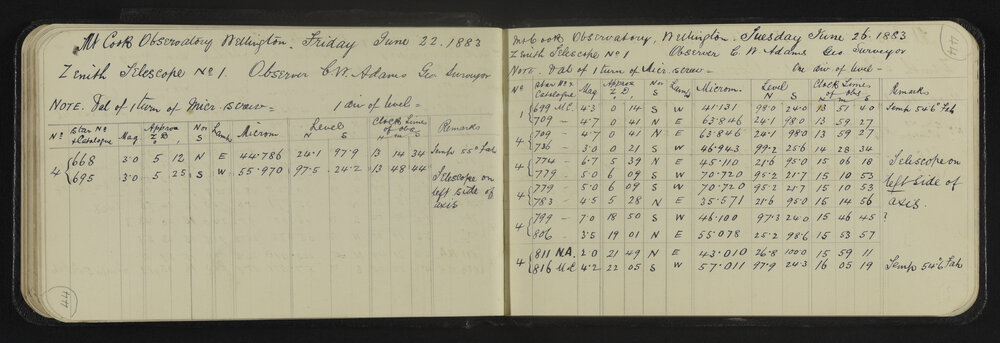 Mt Cook Observatory Wellington. Friday June 22. 1883
Zenith Telescope No 1. Observer C.W. Adams Geo Surveyor
NOTE. Val of 1 turn of Micr. screw = 1 div of level =
No Star No & Catalogue Mag Approx Z D N or S Lamp Microm Level N S Clock Times of obs H m s Remarks
4 { 668 3.0 5 12 N E 44.786 24.1 97.9 13 14 34 Temp 55° Fah
695 3.0 5 25 S W 55.970 97.5 24.2 13 48 44 Telescope on
left side of
axis
44
Mt Cook Observatory, Wellington. Tuesday June 26. 1883
44
Zenith Telescope No 1 Observer C. W. Adams Geo Surveyor
NOTE. Val of 1 turn of Micr. screw = One div of level =
No Star No & Catalogue Mag Approx Z D N or S Lamp Microm. Level N S Clock Times of obs H m s Remarks
1 { 699 M.C. 4.3 0 14 S W 41.131 98.0 24.0 13 51 40 Temp 54.6° Fah
709 - 4.7 0 41 N E 63.846 24.1 98.0 13 59 27
4 { 709 - 4.7 0 41 N E 63.846 24.1 98.0 13 59 27
736 - 3.0 0 21 S W 46.943 99.2 25.6 14 28 34
4 { 774 - 6.7 5 39 N E 45.110 21.6 95.0 15 06 18 Telescope on
779 - 5.0 6 09 S W 70.720 95.2 21.7 15 10 53 left side of
4 { 779 - 5.0 6 09 S W 70.720 95.2 21.7 15 10 53 axis.
783 - 4.5 5 28 N E 35.571 21.6 95.0 15 14 56
4 { 799 - 7.0 18 50 S W 46.100 97.3 24.0 15 46 45 ?
806 - 3.5 19 01 N E 55.078 25.2 98.6 15 53 57
4 { 811 N.A. 2.0 21 49 N E 43.010 26.8 100.0 15 59 11
816 M.C. 4.2 22 05 S W 57.011 97.9 24.3 16 05 19 Temp 54.6° Fah